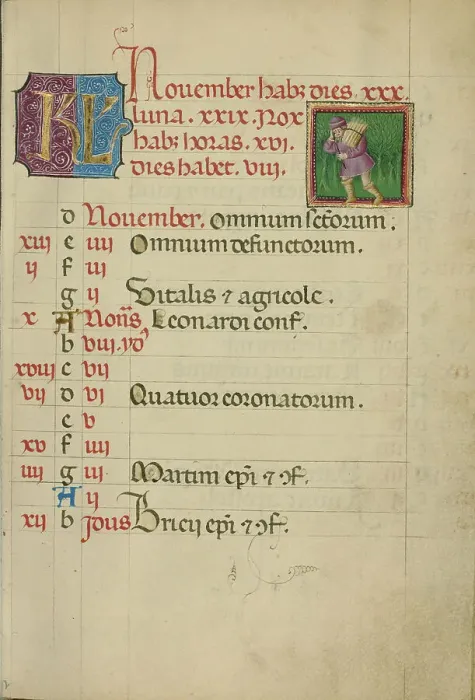 KL
Nouember habꝫ dies. xxx.
luna. xxix. Nox
habꝫ horas. xvj.
dies habet. viij.
d Nouember. Omnium sctorum.
xiij e iiij Omnium defunctorum.
ij f iij
g ij Vitalis ⁊ agricole.
x A Nonis Leonardi conf.
b viij. yd
xviij c vij
vij d vj Quatuor coronatorum.
e v
xv f iiij
iiij g iij Martini epi ⁊ ↄf.
A ij
xij b Jdus Bricij epi ⁊ ↄf.